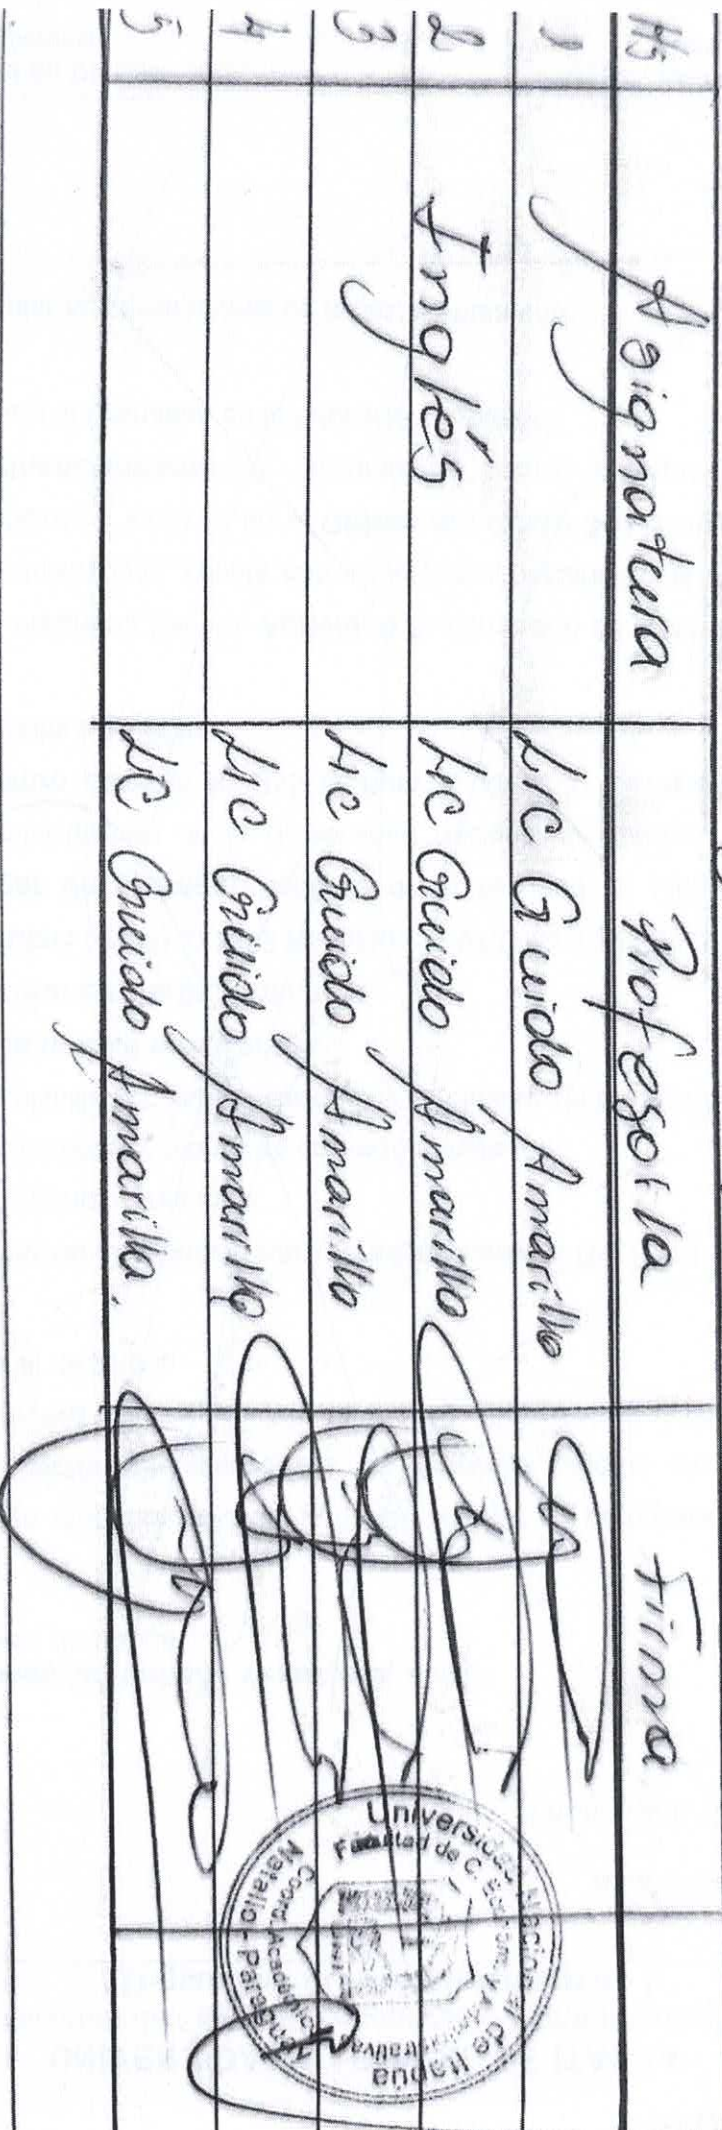 Hs Asignatura Profesor/a Firma
1 Lic Guido Amarilla
2 Inglés Lic Guido Amarilla
3 Lic Guido Amarilla
4 Lic Guido Amarilla
5 Lic Guido Amarilla
Universidad Nacional de Itapúa
Facultad de C. Econ. y Administrativas
Coord. Académica
Natalio - Paraguay